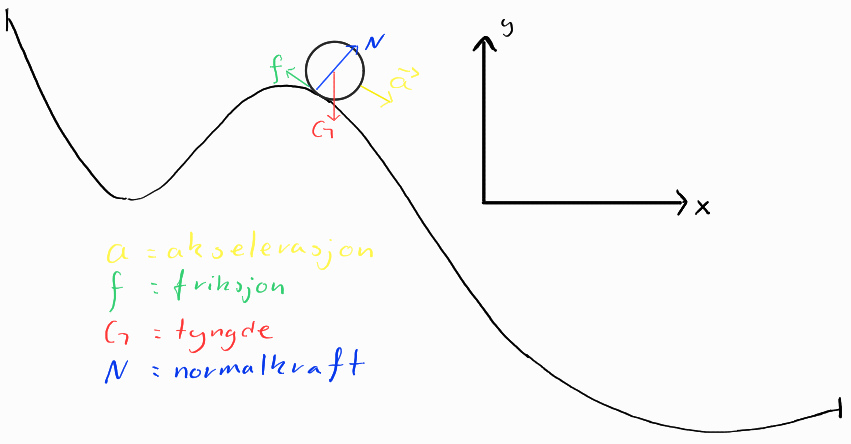 y
N
f
a
G
x
a = akselerasjon
f = friksjon
G = tyngde
N = normalkraft